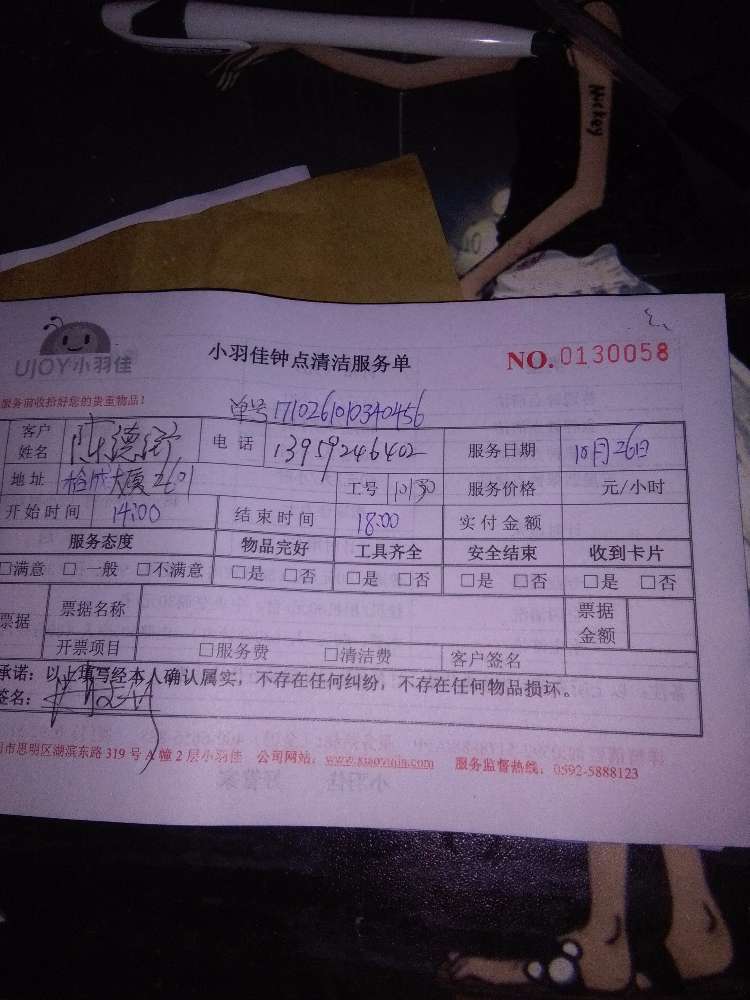 Mickey
UJOY小羽佳
小羽佳钟点清洁服务单
NO.0130058
服务前收拾好您的贵重物品!
单号171026010340456
客户姓名 陈德 电话 13959246402 服务日期 10月26日
地址 大厦2601 工号 10130 服务价格 元/小时
开始时间 14:00 结束时间 18:00 实付金额
服务态度 物品完好 工具齐全 安全结束 收到卡片
□满意 □一般 □不满意 □是 □否 □是 □否 □是 □否 □是 □否
票据 票据名称 票据金额
开票项目 □服务费 □清洁费 客户签名
承诺:以上填写经本人确认属实,不存在任何纠纷,不存在任何物品损坏。
签名:
市思明区湖滨东路319号A幢2层小羽佳 公司网站:www.xiaoyujia.com 服务监督热线:0592-5888123